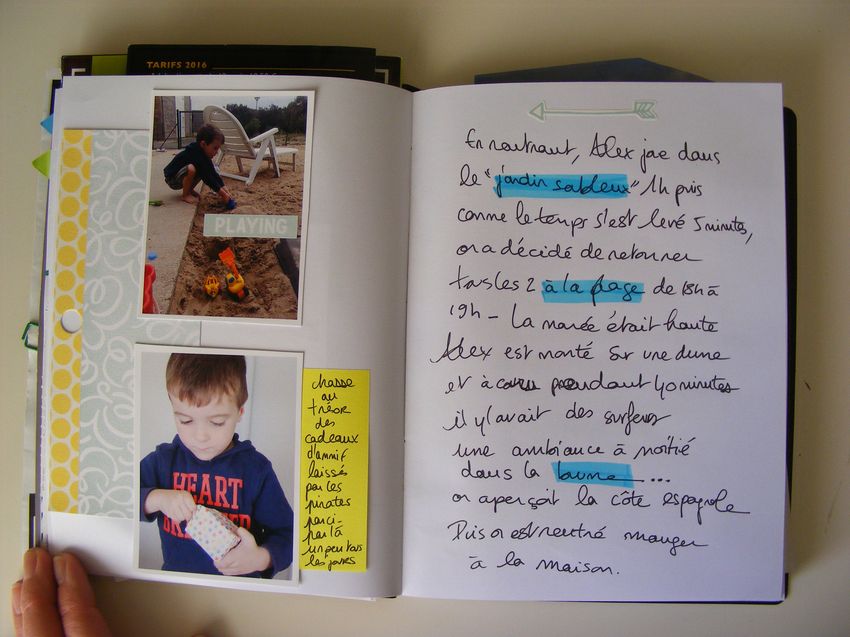 TARIFS 2016
PLAYING
HEART
chasse
au
trésor
des
cadeaux
d'annif
laissés
par les
pirates
parci-
par là
un peu tous
les jours
En rentrant, Alex joue dans
le "jardin sableux" 1h puis
comme le temps s'est levé 5 minutes,
on a décidé de retourner
tous les 2 à la plage de 18h à
19h - La marée était haute
Alex est monté sur une dune
et a couru pendant 40 minutes
il y avait des surfeurs
une ambiance à moitié
dans la brume ...
on aperçoit la côte espagnole
Puis on est rentré manger
à la maison.